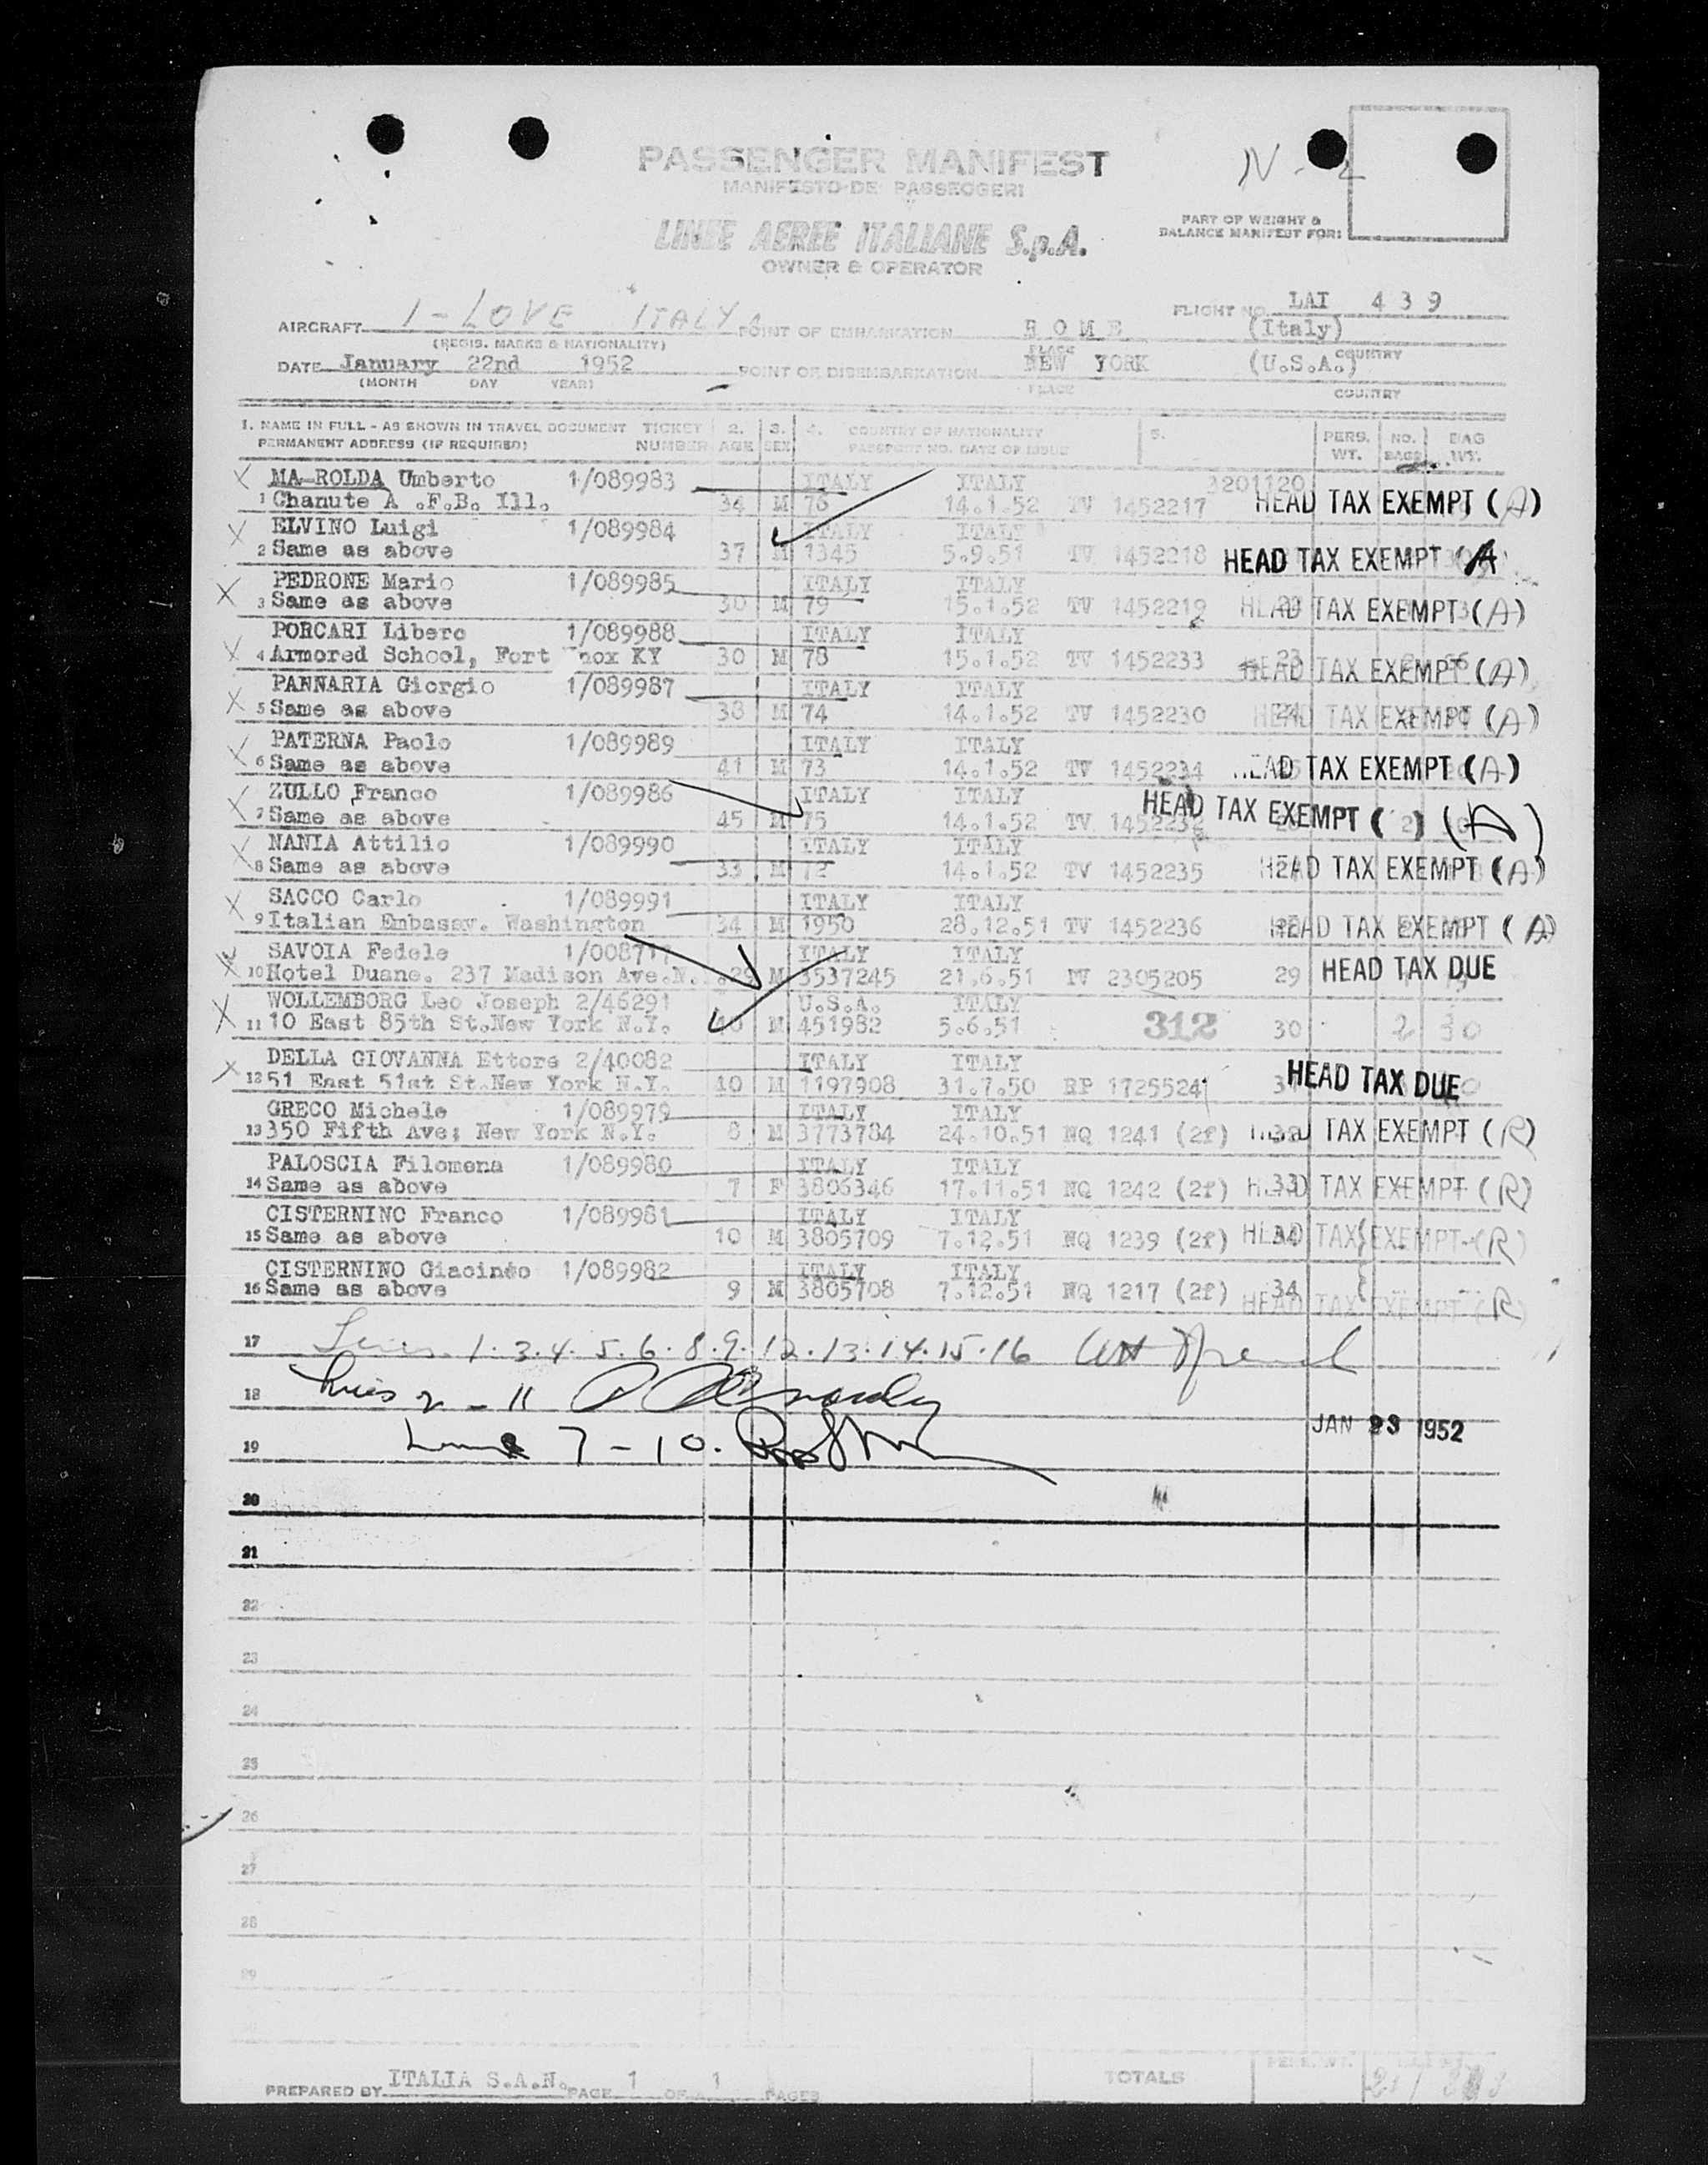 PASSENGER MANIFEST
MANIFESTO DE PASSEGGERI
N. 2
PART OF WEIGHT &
BALANCE MANIFEST FOR:
LINEE AEREE ITALIANE S.p.A.
OWNER & OPERATOR
FLIGHT NO. LAI 439
AIRCRAFT I-LOVE ITALY POINT OF EMBARKATION ROME (Italy)
(REGIS. MARKS & NATIONALITY) PLACE COUNTRY
DATE January 22nd 1952 POINT OF DISEMBARKATION NEW YORK (U.S.A.)
(MONTH DAY YEAR) PLACE COUNTRY
1. NAME IN FULL - AS SHOWN IN TRAVEL DOCUMENT TICKET 2. 3. 4. COUNTRY OF NATIONALITY 5. PERS. NO. BAG
PERMANENT ADDRESS (IF REQUIRED) NUMBER AGE SEX PASSPORT NO. DATE OF ISSUE WT. BAGS WT.
X MA-ROLDA Umberto 1/089983 ITALY ITALY
1 Chanute A .F.B. Ill. 34 M 76 14.1.52 TV 1452217 HEAD TAX EXEMPT (A)
X ELVINO Luigi 1/089984 ITALY ITALY
2 Same as above 37 M 1345 5.9.51 TV 1452218 HEAD TAX EXEMPT (A)
X PEDRONE Mario 1/089985 ITALY ITALY
3 Same as above 30 M 79 15.1.52 TV 1452219 HEAD TAX EXEMPT (A)
X PORCARI Libero 1/089988 ITALY ITALY
4 Armored School, Fort nox KY 30 M 78 15.1.52 TV 1452233 HEAD TAX EXEMPT (A)
X PANNARIA Giorgio 1/089987 ITALY ITALY
5 Same as above 38 M 74 14.1.52 TV 1452230 HEAD TAX EXEMPT (A)
X PATERNA Paolo 1/089989 ITALY ITALY
6 Same as above 41 M 73 14.1.52 TV 1452234 HEAD TAX EXEMPT (A)
X ZULLO Franco 1/089986 ITALY ITALY
7 Same as above 45 M 75 14.1.52 TV HEAD TAX EXEMPT ( ) (A)
X NANIA Attilio 1/089990 ITALY ITALY
8 Same as above 33 M 72 14.1.52 TV 1452235 HEAD TAX EXEMPT (A)
X SACCO Carlo 1/089991 ITALY ITALY
9 Italian Embassy. Washington 34 M 1950 28.12.51 TV 1452236 HEAD TAX EXEMPT (A)
X SAVOIA Fedele ITALY ITALY
10 Hotel Duane. 237 Madison Ave.N. 29 M 3537245 21.6.51 TV 2305205 29 HEAD TAX DUE
X WOLLEMBORG Leo Joseph 2/46291 U.S.A. ITALY
11 10 East 85th St.New York N.Y. M 451982 5.6.51 312 30 2 30
X DELLA GIOVANNA Ettore 2/40082 ITALY ITALY
12 51 East 51st St.New York N.Y. 40 M 1197908 31.7.50 RP 1725524 HEAD TAX DUE
GRECO Michele 1/089979 ITALY ITALY
13 350 Fifth Ave; New York N.Y. 8 M 3773784 24.10.51 NQ 1241 (2f) HEAD TAX EXEMPT (R)
PALOSCIA Filomena 1/089980 ITALY ITALY
14 Same as above 7 F 3806346 17.11.51 NQ 1242 (2f) 33 HEAD TAX EXEMPT (R)
CISTERNINO Franco 1/089981 ITALY ITALY
15 Same as above 10 M 3805709 7.12.51 NQ 1239 (2f) 34 HEAD TAX EXEMPT (R)
CISTERNINO Giacinto 1/089982 ITALY ITALY
16 Same as above 9 M 3805708 7.12.51 NQ 1217 (2f) 34 HEAD TAX EXEMPT (R)
17 Lines 1.3.4.5.6.8.9.12.13.14.15.16
18 Lines 2 - 11
JAN 23 1952
19 Line 7-10.
20
21
22
23
24
25
26
27
28
29
PREPARED BY ITALIA S.A.N. PAGE 1 OF 1 PAGES TOTALS